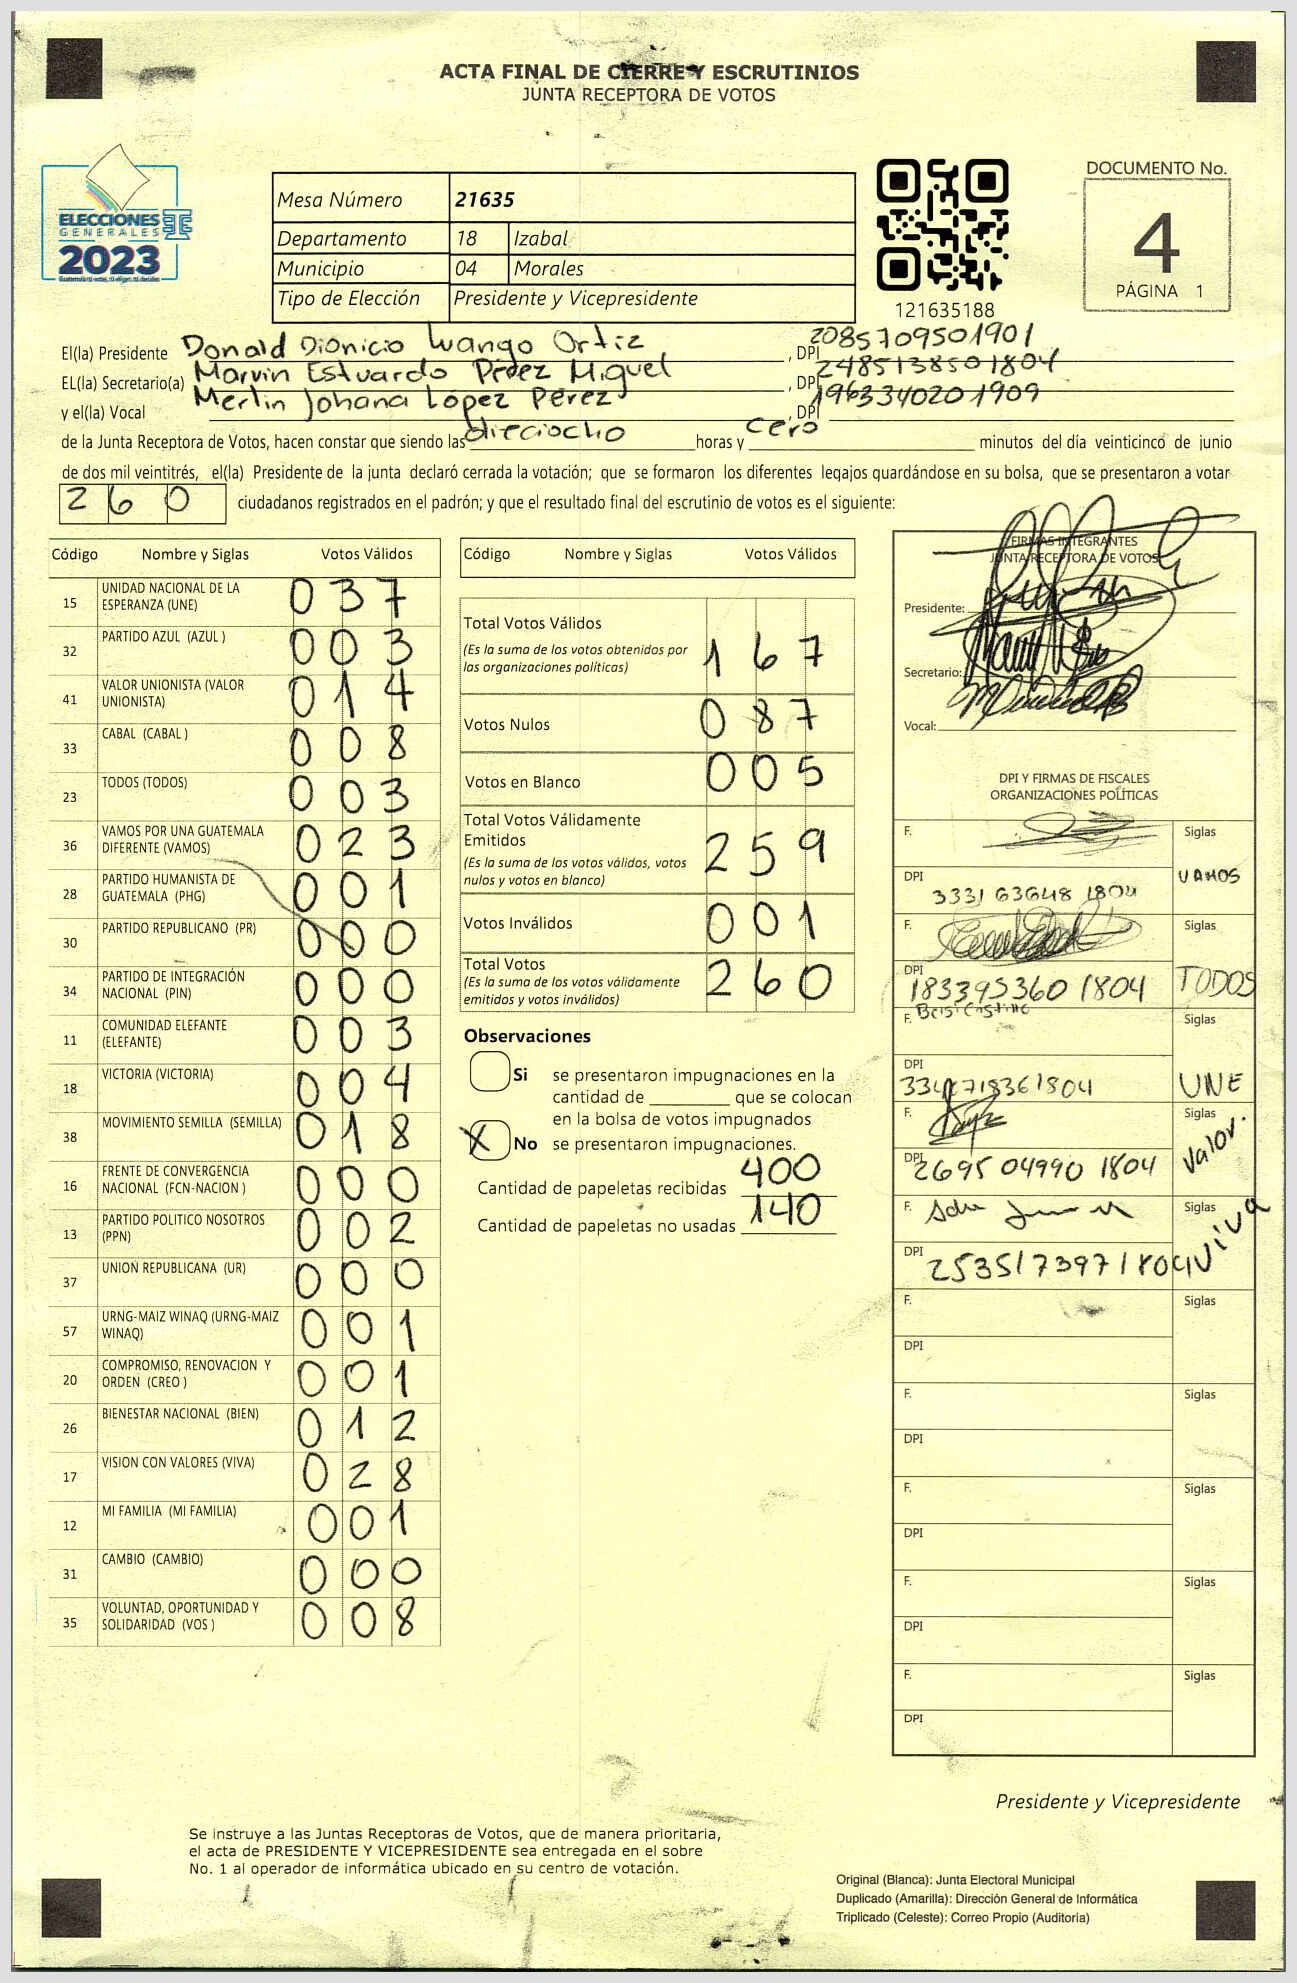 ACTA FINAL DE CIERRE Y ESCRUTINIOS
JUNTA RECEPTORA DE VOTOS
ELECCIONES
GENERALES
2023
Mesa Número 21635
Departamento 18 Izabal
Municipio 04 Morales
Tipo de Elección Presidente y Vicepresidente
121635188
DOCUMENTO No.
4
PÁGINA 1
El(la) Presidente Donald Dionicio Luango Ortiz , DPI 2085709501901
EL(la) Secretario(a) Marvin Estuardo Pérez Miguel , DPI 2485138501804
y el(la) Vocal Merlin Johana López Pérez , DPI 1963340201909
de la Junta Receptora de Votos, hacen constar que siendo las dieciocho horas y cero minutos del día veinticinco de junio
de dos mil veintitrés, el(la) Presidente de la junta declaró cerrada la votación; que se formaron los diferentes legajos guardándose en su bolsa, que se presentaron a votar
260 ciudadanos registrados en el padrón; y que el resultado final del escrutinio de votos es el siguiente:
Código Nombre y Siglas Votos Válidos
15 UNIDAD NACIONAL DE LA ESPERANZA (UNE) 037
32 PARTIDO AZUL (AZUL ) 003
41 VALOR UNIONISTA (VALOR UNIONISTA) 014
33 CABAL (CABAL ) 008
23 TODOS (TODOS) 003
36 VAMOS POR UNA GUATEMALA DIFERENTE (VAMOS) 023
28 PARTIDO HUMANISTA DE GUATEMALA (PHG) 001
30 PARTIDO REPUBLICANO (PR) 000
34 PARTIDO DE INTEGRACIÓN NACIONAL (PIN) 000
11 COMUNIDAD ELEFANTE (ELEFANTE) 003
18 VICTORIA (VICTORIA) 004
38 MOVIMIENTO SEMILLA (SEMILLA) 018
16 FRENTE DE CONVERGENCIA NACIONAL (FCN-NACION ) 000
13 PARTIDO POLITICO NOSOTROS (PPN) 002
37 UNION REPUBLICANA (UR) 000
57 URNG-MAIZ WINAQ (URNG-MAIZ WINAQ) 001
20 COMPROMISO, RENOVACION Y ORDEN (CREO ) 001
26 BIENESTAR NACIONAL (BIEN) 012
17 VISION CON VALORES (VIVA) 028
12 MI FAMILIA (MI FAMILIA) 001
31 CAMBIO (CAMBIO) 000
35 VOLUNTAD, OPORTUNIDAD Y SOLIDARIDAD (VOS ) 008
Código Nombre y Siglas Votos Válidos
Total Votos Válidos
(Es la suma de los votos obtenidos por
las organizaciones políticas) 167
Votos Nulos 087
Votos en Blanco 005
Total Votos Válidamente
Emitidos 259
(Es la suma de los votos válidos, votos
nulos y votos en blanco)
Votos Inválidos 001
Total Votos 260
(Es la suma de los votos válidamente
emitidos y votos inválidos)
Observaciones
Si se presentaron impugnaciones en la
cantidad de que se colocan
en la bolsa de votos impugnados
X No se presentaron impugnaciones.
Cantidad de papeletas recibidas 400
Cantidad de papeletas no usadas 140
FIRMAS INTEGRANTES
JUNTA RECEPTORA DE VOTOS
Presidente:
Secretario:
Vocal:
DPI Y FIRMAS DE FISCALES
ORGANIZACIONES POLÍTICAS
F. Siglas
DPI 3331 63648 1804 VAMOS
F. Siglas
DPI 183395360 1804 TODOS
F. Siglas
DPI UNE
F. Siglas
DPI 2695 04990 1804 Valor.
F. Siglas
DPI 2535173971804 VIVA
F. Siglas
DPI
F. Siglas
DPI
F. Siglas
DPI
F. Siglas
DPI
F. Siglas
DPI
Presidente y Vicepresidente
Se instruye a las Juntas Receptoras de Votos, que de manera prioritaria,
el acta de PRESIDENTE Y VICEPRESIDENTE sea entregada en el sobre
No. 1 al operador de informática ubicado en su centro de votación.
Original (Blanca): Junta Electoral Municipal
Duplicado (Amarilla): Dirección General de Informática
Triplicado (Celeste): Correo Propio (Auditoría)